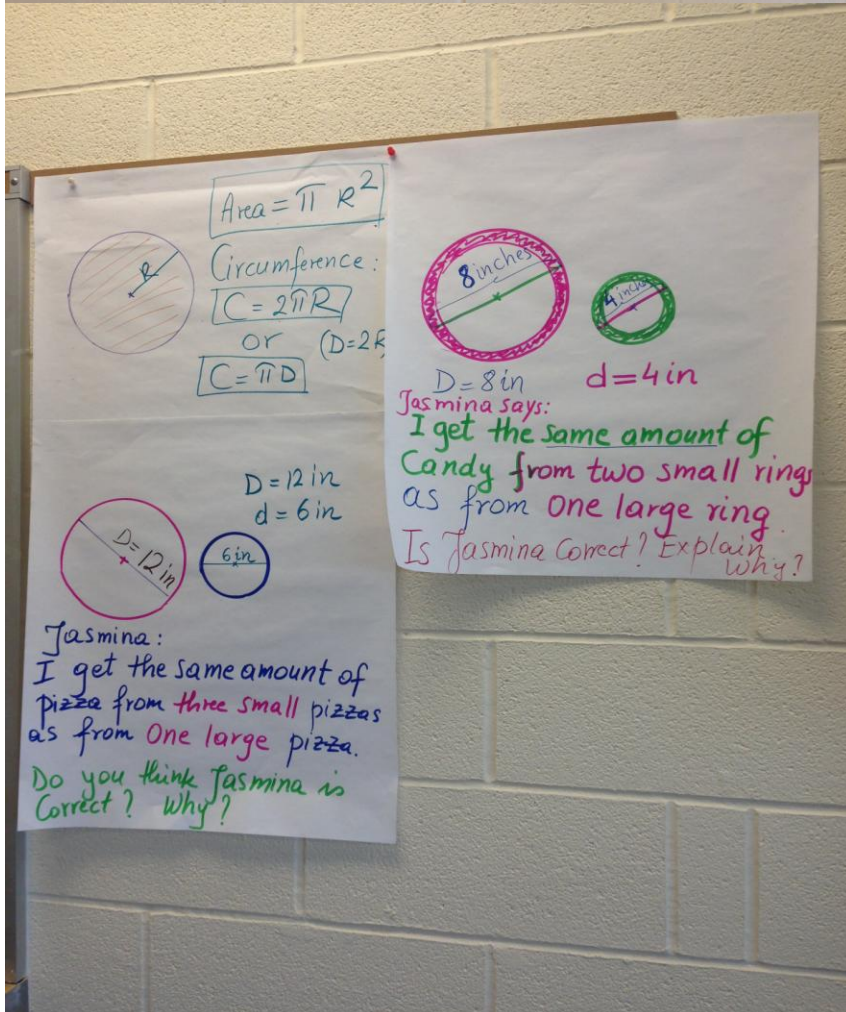 Area = π R²
R
Circumference:
C = 2πR
or (D=2R
C = πD
D = 12 in
d = 6 in
D = 12 in
6 in
Jasmina:
I get the same amount of
pizza from three small pizzas
as from One large pizza.
Do you think Jasmina is
Correct? Why?
8 inches
4 inches
D = 8 in
d = 4 in
Jasmina says:
I get the same amount of
Candy from two small rings
as from One large ring.
Is Jasmina Correct? Explain
Why?